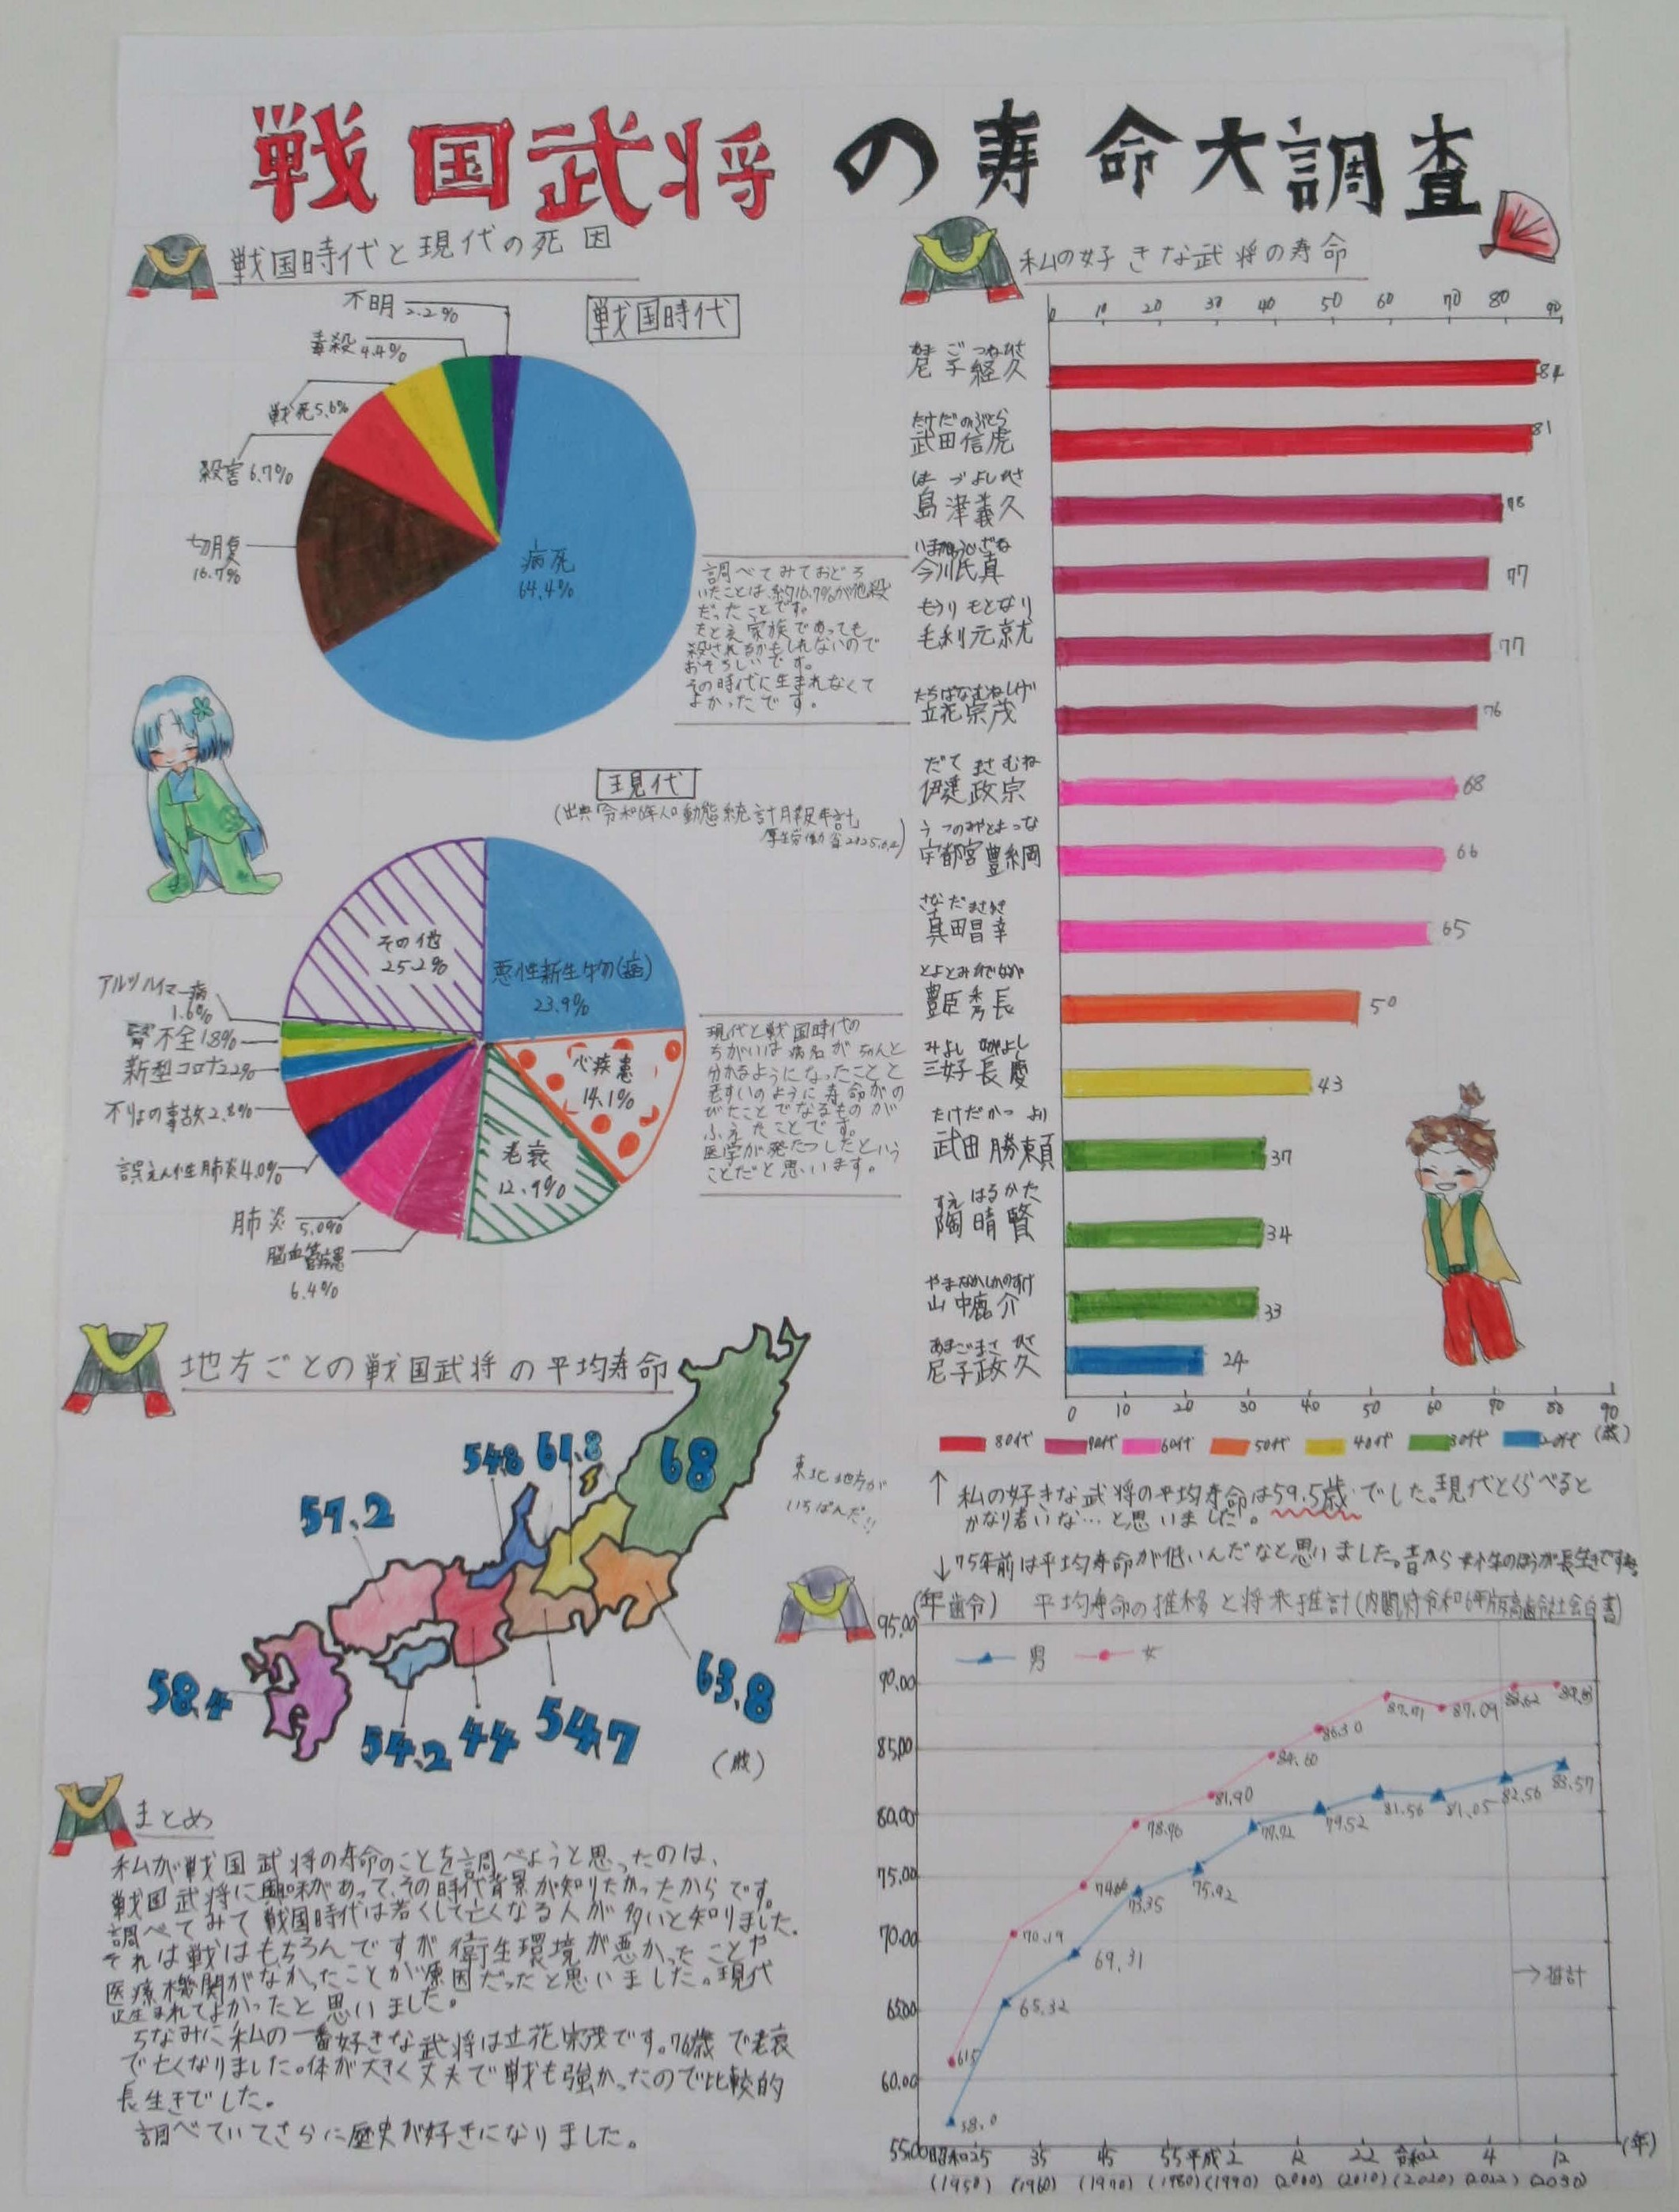 戦国武将の寿命大調査
戦国時代と現代の死因
戦国時代
不明 2.2%
毒殺 4.4%
戦死 5.6%
殺害 6.7%
切腹
16.7%
病死
64.4%
調べてみておどろ
いたことは、約16.7%が他殺
だったことです。
たとえ家族であっても
殺されるかもしれないので
おそろしいです。
その時代に生まれなくて
よかったです。
現代
(出典 令和6年人口動態統計月報年計
厚生労働省 2025.6.4)
その他
25.2%
悪性新生物(癌)
23.9%
心疾患
14.1%
老衰
12.9%
アルツハイマー病
1.6%
腎不全 1.8%
新型コロナ 2.2%
不りょの事故 2.8%
誤えん性肺炎 4.0%
肺炎 5.0%
脳血管疾患
6.4%
現代と戦国時代の
ちがいは病名がちゃんと
分かるようになったことと
老すいのように寿命がの
びたことでなるものが
ふえたことです。
医学が発たつしたという
ことだと思います。
私の好きな武将の寿命
0 10 20 30 40 50 60 70 80 90
あまごつねひさ
尼子経久 84
たけだのぶとら
武田信虎 81
島津義久 78
今川氏真 77
もうりもとなり
毛利元就 77
たちばなむねしげ
立花宗茂 76
だてまさむね
伊達政宗 68
うつのみやとよつな
宇都宮豊綱 66
さなだまさゆき
真田昌幸 65
とよとみひでなが
豊臣秀長 50
みよしながよし
三好長慶 43
たけだかつより
武田勝頼 37
すえはるかた
陶晴賢 34
やまなかしかのすけ
山中鹿介 33
あまごまさひさ
尼子政久 24
0 10 20 30 40 50 60 70 80 90
(歳)
80代 70代 60代 50代 40代 30代 20代
↑ 私の好きな武将の平均寿命は59.5歳でした。現代とくらべると
かなり若いな…と思いました。
地方ごとの戦国武将の平均寿命
68
61.8
54.8
57.2
58.4
54.2
44
54.7
63.8
(歳)
東北地方が
いちばんだ!!
↓75年前は平均寿命が低いんだなと思いました。昔から女性のほうが長生きですね
(年齢) 平均寿命の推移と将来推計(内閣府令和6年版高齢社会白書)
男 女
95.00
90.00
85.00
80.00
75.00
70.00
65.00
60.00
55.00
61.5
70.19
74.66
78.76
81.90
84.60
86.30
87.71
87.09
58.0
65.32
69.31
73.35
75.92
77.72
79.52
81.56
81.05
82.56
83.57
→推計
昭和25 35 45 55 平成2 12 22 令和2 4 12 (年)
(1950) (1960) (1970) (1980) (1990) (2000) (2010) (2020) (2022) (2030)
まとめ
私が戦国武将の寿命のことを調べようと思ったのは、
戦国武将に興味があって、その時代背景が知りたかったからです。
調べてみて戦国時代は若くして亡くなる人が多いと知りました。
それは戦はもちろんですが衛生環境が悪かったことや
医療機関がなかったことが原因だったと思いました。現代
に生まれてよかったと思いました。
ちなみに私の一番好きな武将は立花宗茂です。76歳で老衰
で亡くなりました。体が大きく丈夫で戦も強かったので比較的
長生きでした。
調べていてさらに歴史が好きになりました。